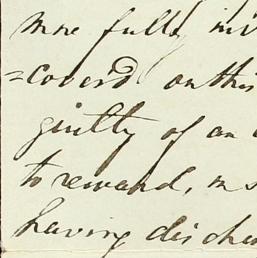 more fully inv
=cover'd on this
guilty of an
to reward, in s
having discha